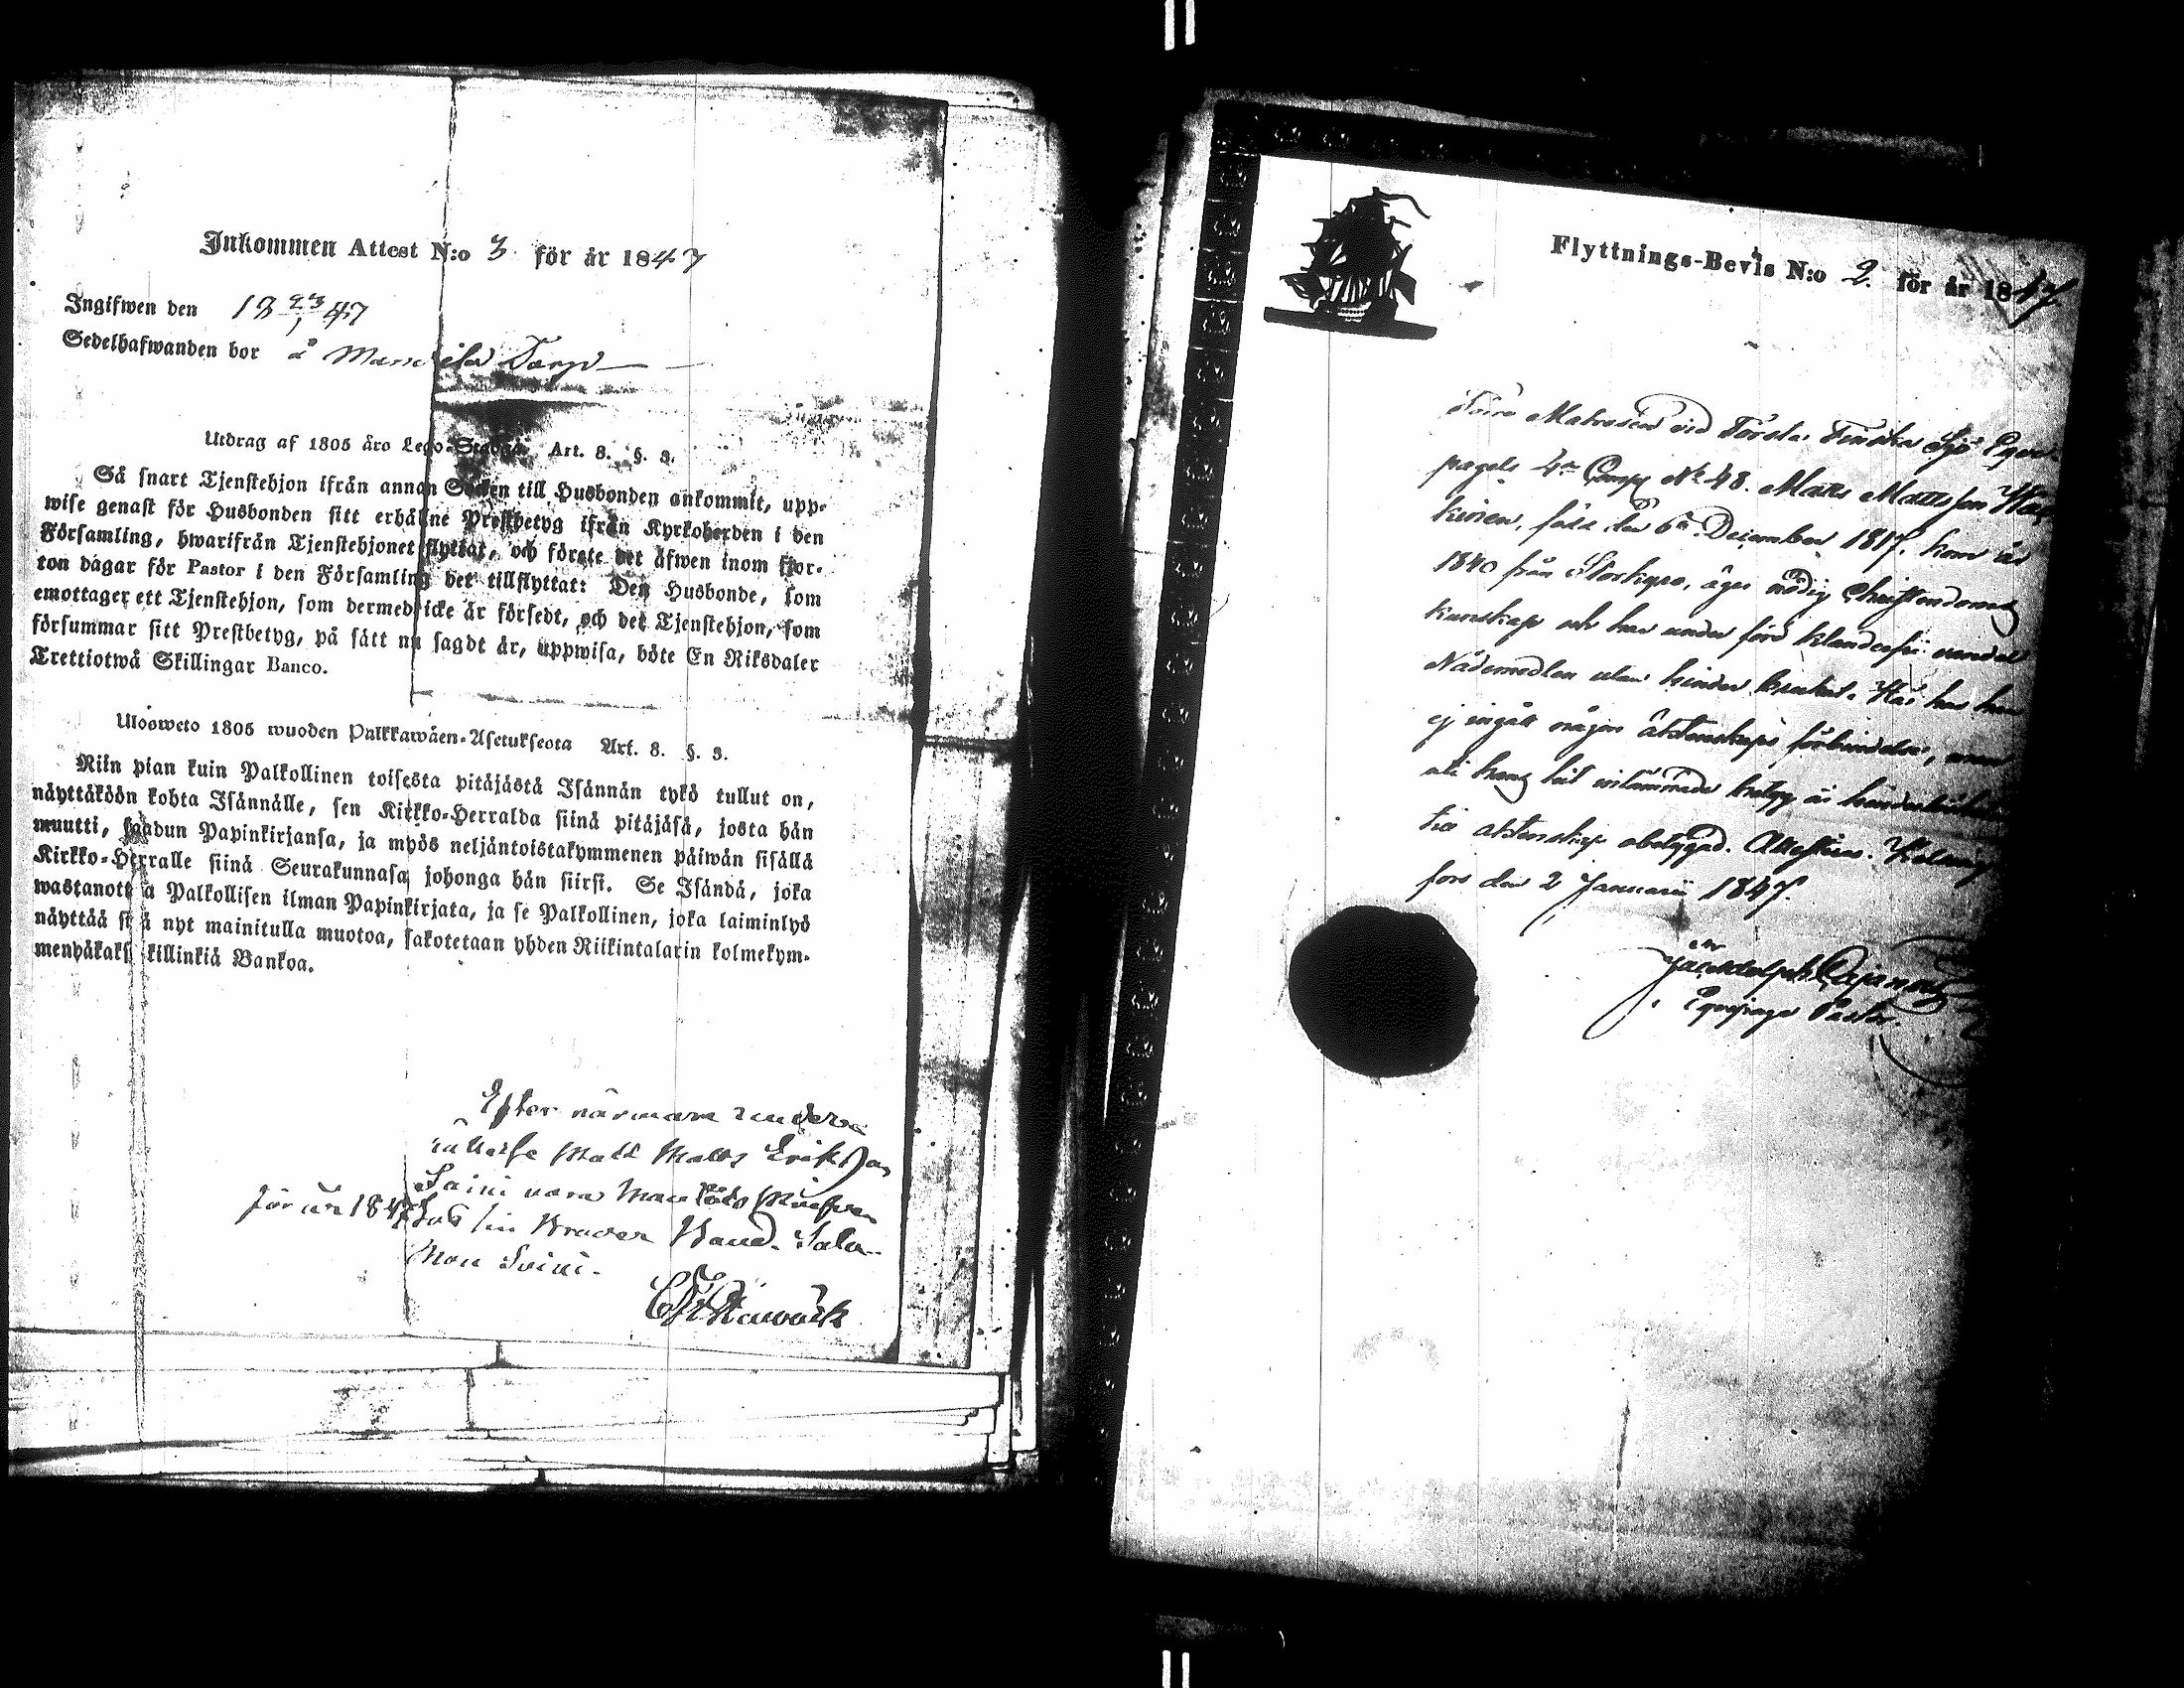 Inkommen Attest N:o 3 för år 1847
Ingifwen den 18 23/1 47
Sedelhafwanden bor å Torp
Utdrag af 1805 års Lego-Stadga. Art. 8. §. 3.
Så snart Tjenstehjon ifrån annan Socken till Husbonden ankommit, upp-
wise genast för Husbonden sitt erhållne Prestbetyg ifrån Kyrkoherden i den
Församling, hwarifrån Tjenstehjonet flyttat, och förete det äfwen inom fjor-
ton dagar för Pastor i den Församling det tillflyttat: Den Husbonde, som
emottager ett Tjenstehjon, som dermed icke är försedt, och det Tjenstehjon, som
försummar sitt Prestbetyg, på sätt nu sagdt är, uppwisa, böte En Riksdaler
Trettiotwå Skillingar Banco.
Ulosweto 1805 wuoden Palkkawäen-Asetuksesta Art. 8. §. 3.
Niin pian kuin Palkollinen toisesta pitäjästä Isännän tykö tullut on,
näyttäköön kohta Isännälle, sen Kirkko-Herralda siinä pitäjäsä, josta hän
muutti, saadun Papinkirjansa, ja myös neljäntoistakymmenen päiwän sisällä
Kirkko-Herralle siinä Seurakunnasa johonga hän siirsi. Se Isändä, joka
wastanotta a Palkollisen ilman Papinkirjata, ja se Palkollinen, joka laiminlyö
näyttää sitä nyt mainitulla muotoa, sakotetaan yhden Riikintalarin kolmekym-
menyäkaksi killinkiä Bankoa.
Efter närmare under
Matts Eriksson
Saini vara
för år 1847 hos sin Broder Bond. Salo-
mon Saini.
Flyttnings-Bevis N:o 2. för år 1847
Förre Matrosen vid Första Finska Sjö Equi
pagets 4de Comp. No 48. Matts Mattsson
född den 6te December 1817, kom år
1840 från Storkyro, äger nödig Christendoms
kunskap och har under förd klanderfri vandel
Nådemedlen utan hinder brukat. Här har han
ej ingått någon äktenskaps förbindelse, men
uti hans hit inlämnade betyg är
till äktenskap obetygad. Attesteras. Helsing
fors den 2 Januarii 1847.
Cajanus
Equipage Pastor.